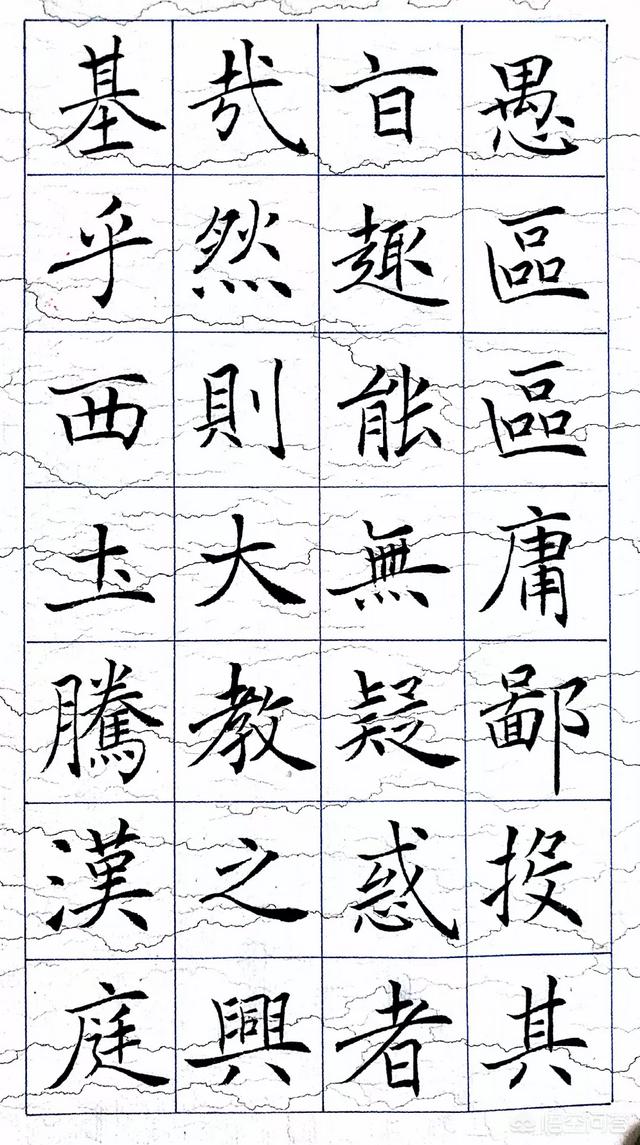 愚區區庸鄙投其
旨趣能無疑惑者
哉然則大教之興
基乎西土騰漢庭
悟空问答